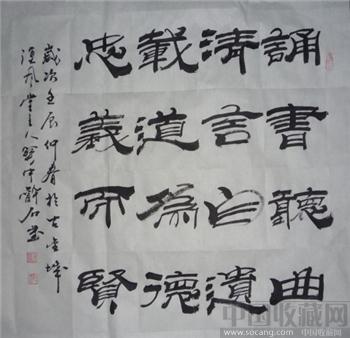 誦書聽曲
清言自遺
載道為德
忠義賢
歲次壬辰仲春於古
漢風堂主人石書
中国收藏网
www.socang.com 中国收藏网